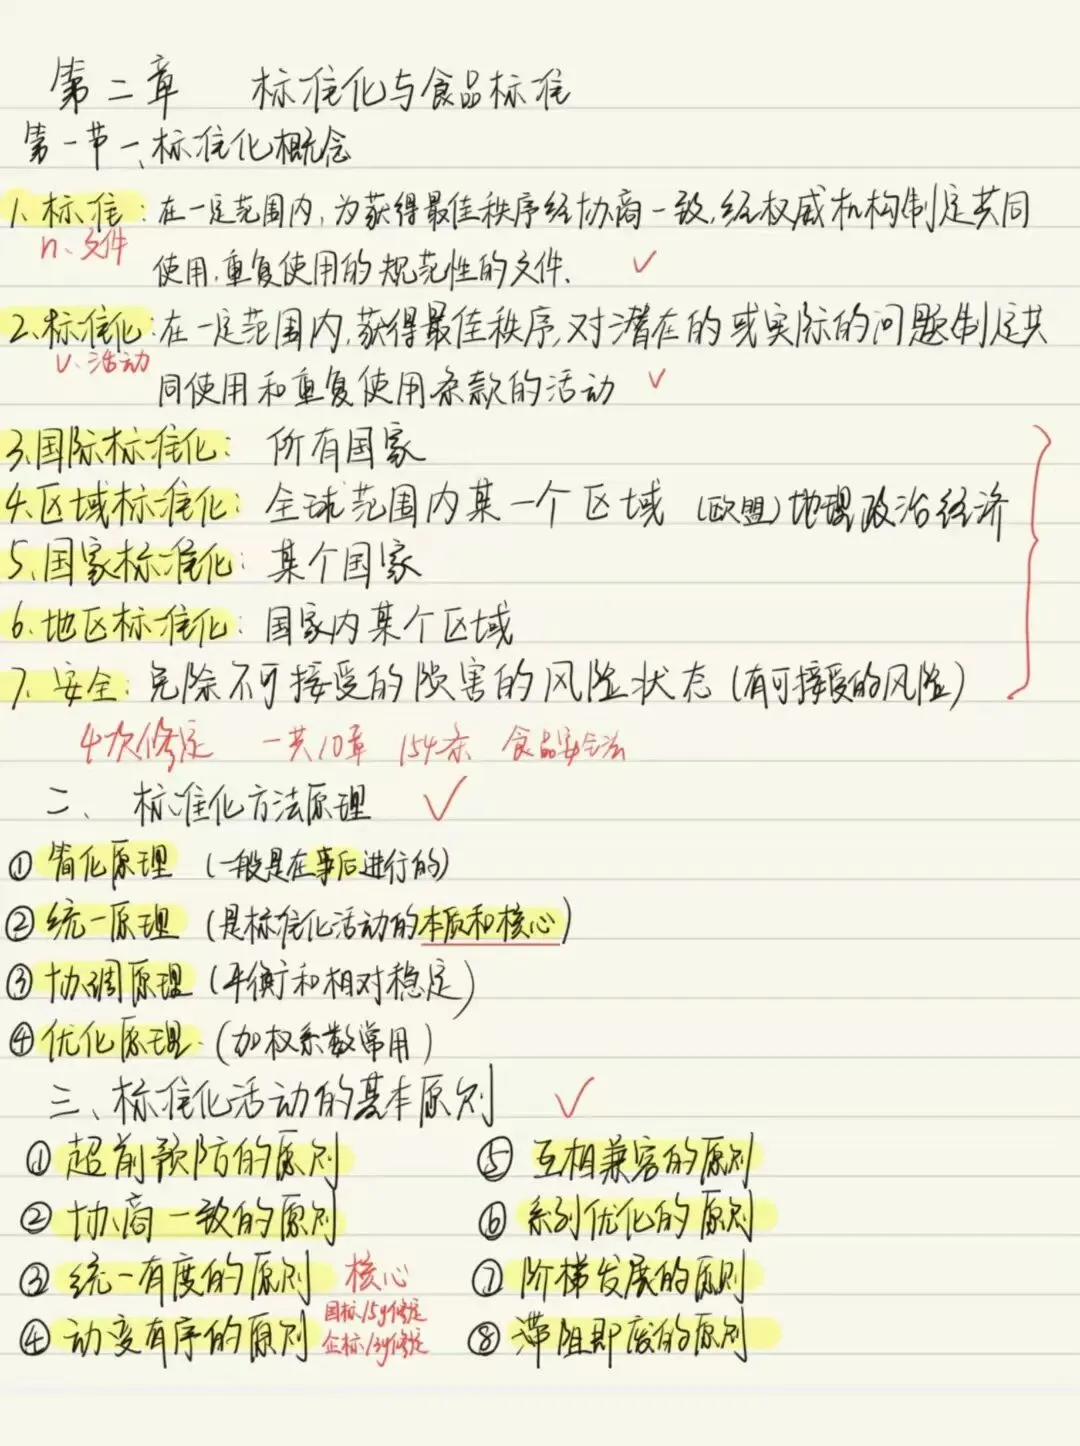 第二章 标准化与食品标准
第一节 一、标准化概念
1、标准：在一定范围内,为获得最佳秩序经协商一致,经权威机构制定共同
n、文件
使用,重复使用的规范性的文件.
2、标准化：在一定范围内,获得最佳秩序,对潜在的或实际的问题制定共
v、活动
同使用和重复使用条款的活动
3.国际标准化： 所有国家
4.区域标准化： 全球范围内某一个区域 (欧盟)地理政治经济
5、国家标准化： 某个国家
6.地区标准化： 国家内某个区域
7、安全：免除不可接受的损害的风险状态（有可接受的风险）
4次修定 一共10章 154条 食品安全法
二、 标准化方法原理
① 简化原理 (一般是在事后进行的)
② 统一原理 (是标准化活动的本质和核心)
③ 协调原理 (平衡和相对稳定)
④ 优化原理.(加权系数常用)
三、标准化活动的基本原则
① 超前预防的原则 ⑤ 互相兼容的原则
② 协商一致的原则 ⑥ 系列优化的原则
③ 统一有度的原则 核心 ⑦ 阶梯发展的原则
国标/5y修定
④ 动变有序的原则 企标/3y修定 ⑧ 滞阻即废的原则